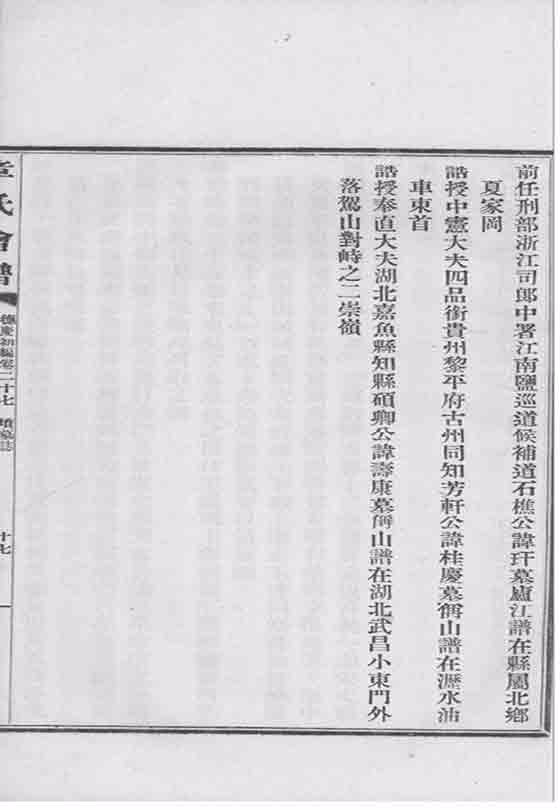 前任刑部浙江司郎中署江南鹽巡道候補道石樵公諱玕墓廬江譜在縣屬北鄉
夏家岡
誥授中憲大夫四品銜貴州黎平府古州同知芳軒公諱桂慶墓偁山譜在瀝水油
車東首
誥授奉直大夫湖北嘉魚縣知縣碩卿公諱壽康墓偁山譜在湖北武昌小東門外
落駕山對峙之二崇嶺
章氏會譜
德慶初編卷二十七
墳墓誌
十七